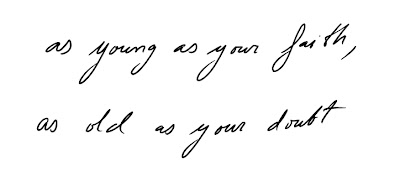 as young as your faith,
as old as your doubt